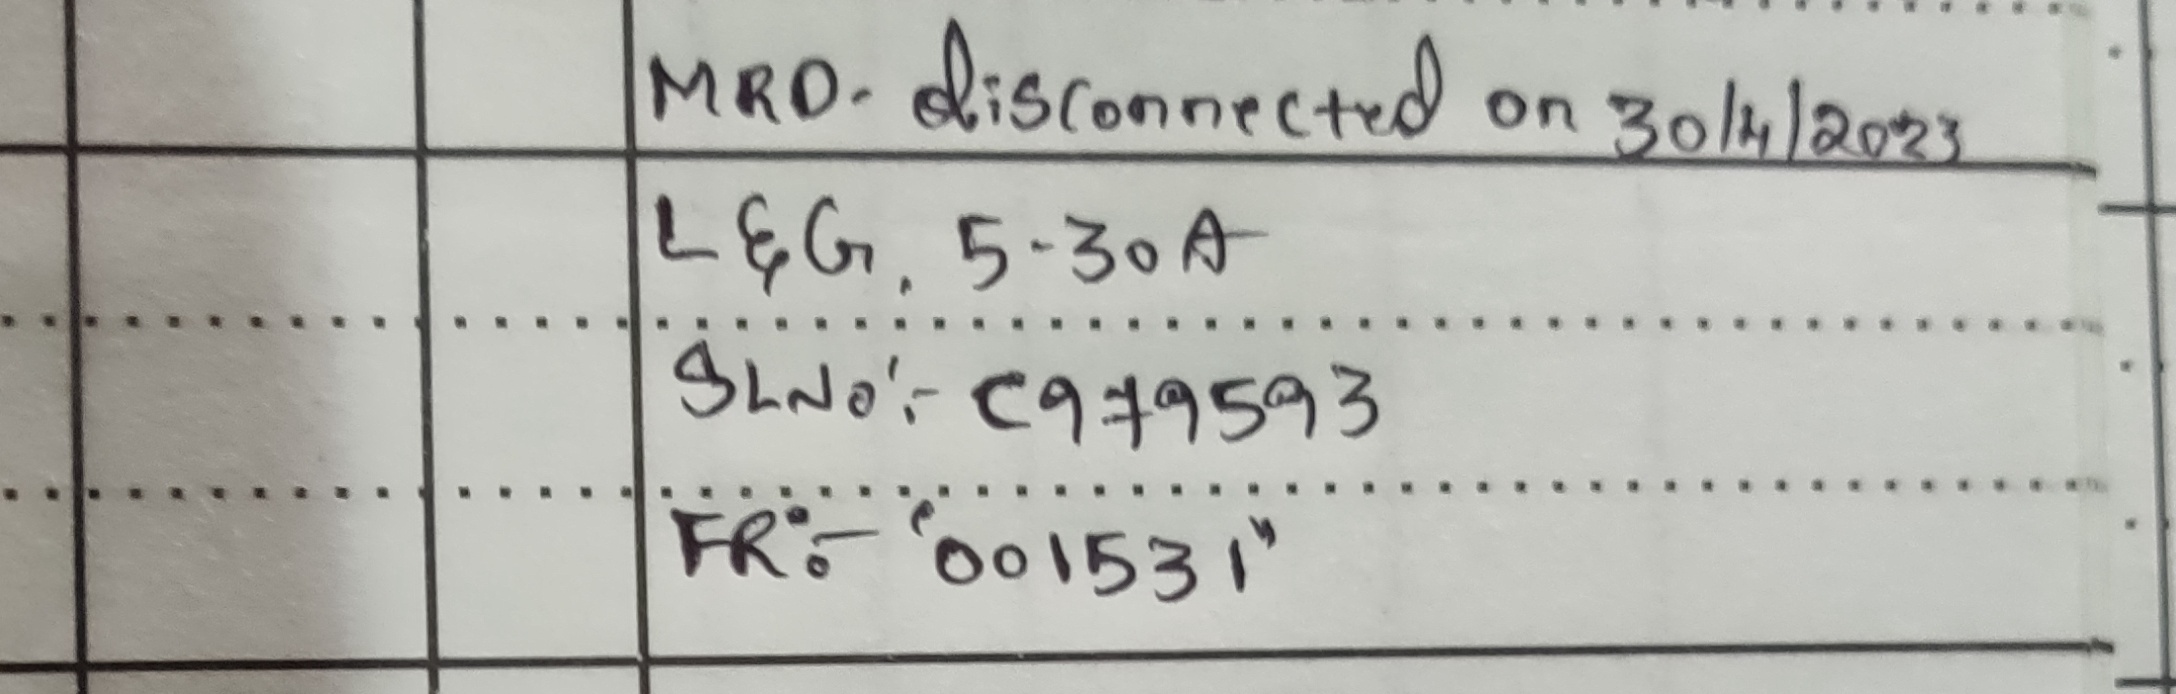 MRD- disconnected on 30/4/2023
L&G, 5-30A
SLNo:- C979593
FR:- "001531"